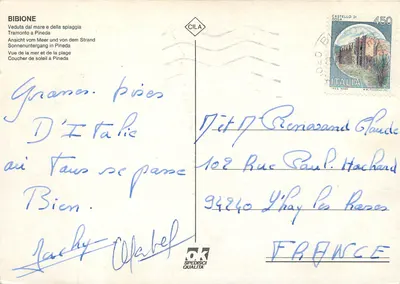 BIBIONE
Veduta dal mare e della spiaggia
Tramonto a Pineda
Ansicht vom Meer und von dem Strand
Sonnenuntergang in Pineda
Vue de la mer et de la plage
Coucher de soleil à Pineda
CILA
CASTELLO DI
450
Grosses bises
D'Italie
où tous se passe
Bien.
Jacky
M et M Renouard Claude
102 Rue Paul. Hochard
94240 L'hay les Roses
FRANCE
OK
SPEDISCI
QUALITÀ